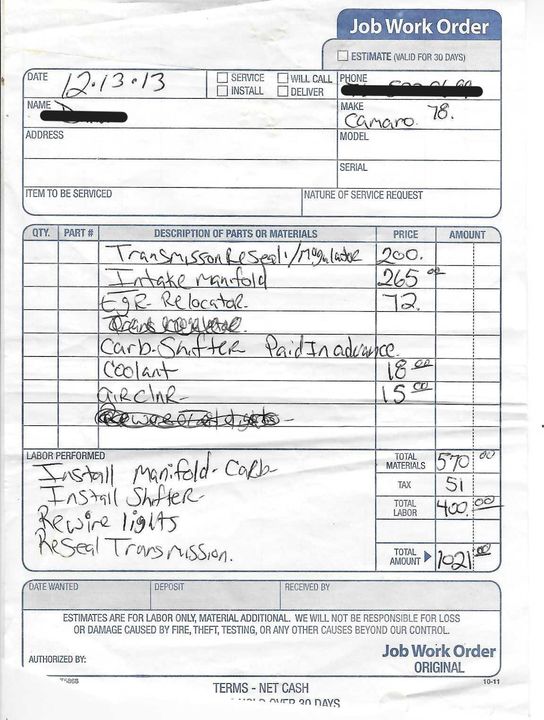 Job Work Order
ESTIMATE (VALID FOR 30 DAYS)
DATE 12.13.13
SERVICE WILL CALL
INSTALL DELIVER
PHONE
NAME
MAKE Camaro. 78.
ADDRESS
MODEL
SERIAL
ITEM TO BE SERVICED NATURE OF SERVICE REQUEST
QTY. PART # DESCRIPTION OF PARTS OR MATERIALS PRICE AMOUNT
Transmisson ReSeal 200.
Intake Manifold 265 00
EgR Relocator. 72.
Carb-Shifter Paid In advance.
Coolant 18 00
aiRclnR- 15 00
LABOR PERFORMED
Install Manifold-Carb-
Install Shifter-
Rewire lights
ReSeal Transmission.
TOTAL MATERIALS 570 00
TAX 51
TOTAL LABOR 400. 00
TOTAL AMOUNT 1021 00
DATE WANTED DEPOSIT RECEIVED BY
ESTIMATES ARE FOR LABOR ONLY, MATERIAL ADDITIONAL. WE WILL NOT BE RESPONSIBLE FOR LOSS
OR DAMAGE CAUSED BY FIRE, THEFT, TESTING, OR ANY OTHER CAUSES BEYOND OUR CONTROL.
AUTHORIZED BY:
Job Work Order
ORIGINAL
10-11
TERMS - NET CASH
OVER 30 DAYS